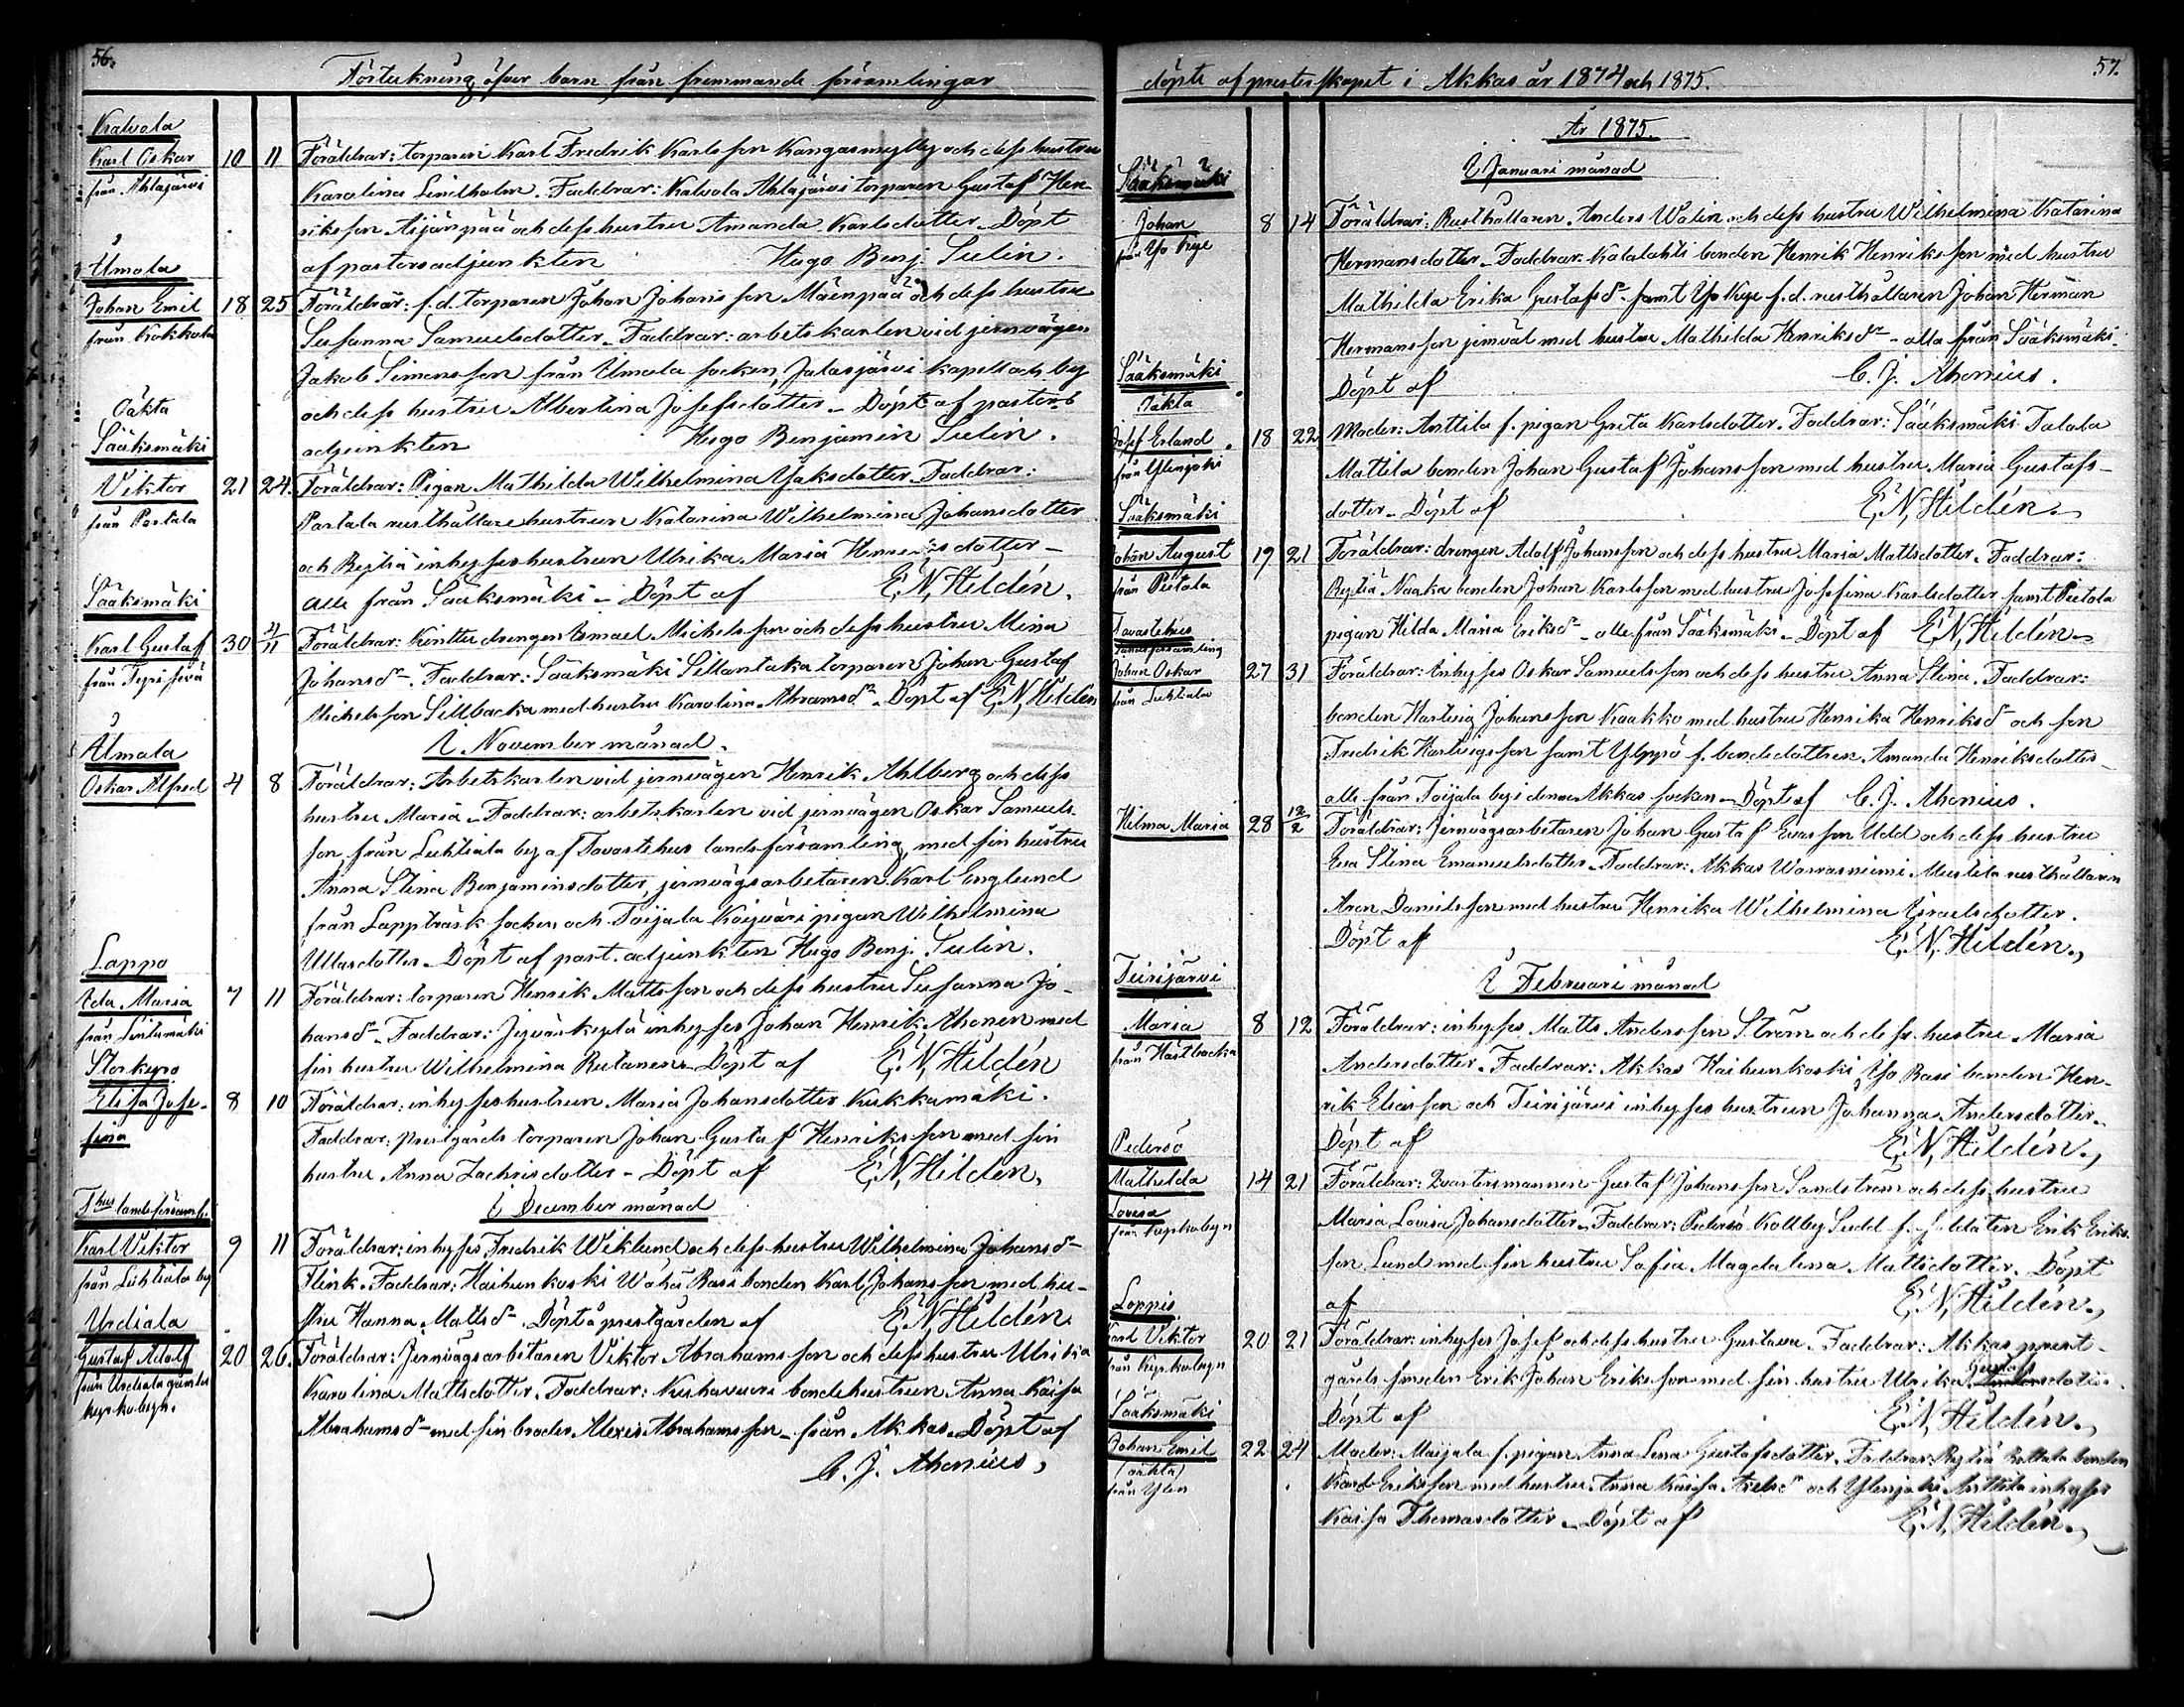 56.
Förteckning öfver barn från främmande församlingar
Kalvola
Karl Oskar 10 11 Föräldrar: torparen Karl Fredrik Karlsson Kangasmylly och dess hustru
från Ahlajärvi Karolina Lindholm. Faddrar: Kalvola Ahlajärvi torparen Gustaf Hen-
riksson Äijänpää och dess hustru Amanda Karlsdotter. Döpt
af pastorsadjunkten Hugo Benj. Sulin.
Ilmola
Johan Emil 18 25 Föräldrar: f.d. torparen Johan Johansson Mäenpää och dess hustru
från Kokkola Susanna Samuelsdotter. Faddrar: arbetskarlen vid jernvägen
Jakob Simonsson från Ilmola socken, Jalasjärvi kapell och by
och dess hustru Albertina Josefsdotter. Döpt af pastors
adjunkten Hugo Benjamin Sulin.
Oäkta
Sääksmäki
Viktor 21 24. Föräldrar: Pigan Mathilda Wilhelmina Isaksdotter. Faddrar:
från Partala Partala rusthållarehustrun Katarina Wilhelmina Johansdotter
och Ryttiä inhyseshustrun Ulrika Maria Henriksdotter -
alla från Sääksmäki. Döpt af E. N. Hildén.
Sääksmäki
Karl Gustaf 30 4/11 Föräldrar: drengen Ismael Michelsson och dess hustru Mina
Johansdr. Faddrar: Sääksmäki Sillantaka torparen Johan Gustaf
Michelsson Sillbacka med hustru Karolina Abramsdr. Döpt af E. N. Hildén
I November månad.
Ilmola
Oskar Alfred 4 8 Föräldrar: Arbetskarlen vid jernvägen Henrik Ahlberg och dess
hustru Maria. Faddrar: arbetskarlen vid jernvägen Oskar Samuels-
son, från Luhtiala by af Tavastehus landsförsamling, med sin hustru
Anna Stina Benjaminsdotter, jernvägsarbetaren Karl Englund
från Lappträsk socken och Toijala pigan Wilhelmina
Ullasdotter. Döpt af past. adjunkten Hugo Benj. Sulin.
Lappo
Ida Maria 7 11 Föräldrar: torparen Henrik Mattsson och dess hustru Susanna Jo-
från Lintumäki hansdr. Faddrar: inhyses Johan Henrik Ahonen med
sin hustru Wilhelmina Rutanen. Döpt af E. N. Hildén
Storkyro
Elisa Jose- 8 10 Föräldrar: inhyseshustrun Maria Johansdotter Kukkamäki.
fina Faddrar: prestgårds torparen Johan Gustaf Henriksson med sin
hustru Anna Zachrisdotter. Döpt af E. N. Hildén.
I December månad
Thus landsförsaml.
Karl Viktor 9 11 Föräldrar: inhyses Fredrik Wiklund och dess hustru Wilhelmina Johansdr
från Luhtiala by Flink. Faddrar: Haihunkoski Wähä Rasi bonden Karl Johansson med hu-
stru Hanna Mattsdr. Döpt å prestgården af E. N. Hildén.
Urdiala
Gustaf Adolf 20 26. Föräldrar: Jernvägsarbetaren Viktor Abrahamsson och dess hustru Ulrika
från Urdiala gamla Karolina Mattsdotter. Faddrar: Kurhavuori bondehustrun Anna Kaisa
kyrkobyn. Abrahamsdr med sin broder Alexis Abrahamsson från Akkas. Döpt af
C. J. Ahonius,
57.
döpte af presterskapet i Akkas år 1874 och 1875.
År 1875.
I Januari månad
Sääksmäki
Johan 8 14 Föräldrar: Rusthållaren Anders Walin och dess hustru Wilhelmina Katarina
från Yli Kye Hermansdotter. Faddrar: Kalalahti bonden Henrik Henriksson med hustru
Mathilda Erika Gustafsdr samt Yli Kye f.d. rusthållaren Johan Herman
Hermansson jemväl med hustru Mathilda Henriksdr - alla från Sääksmäki.
Döpt af C. J. Ahonius.
Sääksmäki
Oäkta
Josef Erland 18 22 Moder: Anttila f. pigan Greta Karlsdotter. Faddrar: Sääksmäki Talala
från Ylenjoki Mattila bonden Johan Gustaf Johansson med hustru Maria Gustafs-
dotter. Döpt af E. N. Hildén.
Sääksmäki
Johan August 19 21 Föräldrar: drengen Adolf Johansson och dess hustru Maria Mattsdotter. Faddrar:
från Pietola Ryttiä Naaka bonden Johan Karlsson med hustru Josefina Karlsdotter samt Pietola
pigan Hilda Maria Eriksdr - alla från Sääksmäki. Döpt af E. N. Hildén.
Tavastehus
landsförsamling
Johan Oskar 27 31 Föräldrar: Inhyses Oskar Samuelsson och dess hustru Anna Stina. Faddrar:
från Luhtiala bonden Hartvig Johansson Kaakko med hustru Henrika Henriksdr och son
Fredrik Hartvigsson samt Yleppö f. bondedottren Amanda Henriksdotter -
alla från Toijala by i denna Akkas socken. Döpt af C. J. Ahonius.
Hilma Maria 28 12/2 Föräldrar: Jernvägsarbetaren Johan Gustaf Evasson Udd och dess hustru
Eva Stina Emanuelsdotter. Faddrar: Akkas Warrasniemi Mustila rusthållaren
Aron Danielsson med hustru Henrika Wilhelmina Israelsdotter.
Döpt af E. N. Hildén.
I Februari månad
Teirijärvi
Maria 8 12 Föräldrar: inhyses Matts Andersson Ström och dess hustru Maria
från Hästbacka Andersdotter. Faddrar: Akkas Haihunkoski, Iso Rasi bonden Hen-
rik Eliasson och Teirijärvi inhyses hustrun Johanna Andersdotter.
Döpt af E. N. Hildén.
Pedersö
Mathilda 14 21 Föräldrar: Qvartersmannen Gustaf Johansson Sandström och dess hustru
Lovisa Maria Lovisa Johansdotter. Faddrar: Pedersö Kållby Sudd f. soldaten Erik Eriks-
från kyrkobyn son Lund med sin hustru Sofia Magdalena Mattsdotter. Döpt
af E. N. Hildén.
Loppis
Karl Viktor 20 21 Föräldrar: inhyses Josef och dess hustru Gustava. Faddrar: Akkas prest-
från kyrkobyn gårds smeden Erik Johan Eriksson med sin hustru Ulrika Gustafsdotter.
Döpt af E. N. Hildén.
Sääksmäki
Johan Emil 22 24 Moder: Maijala f. pigan Anna Lena Gustafsdotter. Faddrar: Ryttiä Rottala bonden
(oäkta) Karl Eriksson med hustru Anna Kaisa Axelsdr och Ylenjoki Anttila inhyses
från Ylen Kaisa Thomasdotter. Döpt af E. N. Hildén.